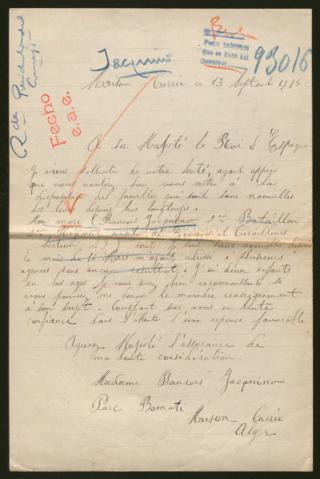 Jacquino
93016
Fecho
e.a.e.
Maison Carrée ce 13 Septembre 1915
A Sa Majesté le Roi d'Espagne
Je viens solliciter de votre bonté, ayant appris
que vous vouliez bien vous mettre à la
disposition des familles qui sont sans nouvelles
des leurs depuis très longtemps.
Son mari François Jacquino Bataillon
de Tirailleurs
sans nouvelles depuis
le mois de m'ayant adressé à plusieurs
agences sans aucun resultat. J'ai deux enfants
en bas age je vous serai bien reconnaissante si
vous pouvez me donner le moindre renseignement
à son sujet. Comptant sur vous en toute
confiance dans l'attente d'une réponse favorable.
Agréez Majesté l'assurance de
ma haute considération.
Madame François Jacquino
Parc Bomati
Maison Carrée
Alger